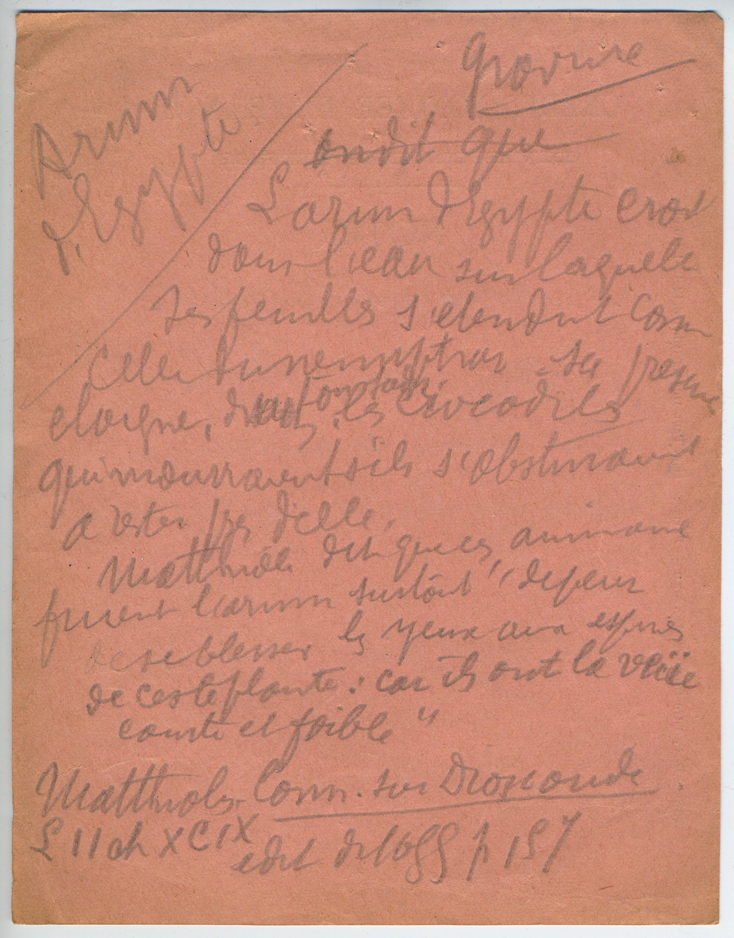 Arum
d'Egypte
Gravure
on dit que
L'arum d'Egypte croit
dans l'eau sur laquelle
ses feuilles s'etendent com
celles du nenuphar sa presence
eloigne, les crocodiles
qui mourraient s'ils s'obstinaient
a rester pres d'elle.
Matthiole dit que ces animaux
fuient l'arum surtout "de peur
de se blesser les yeux aux espines
de ceste plante : car ils ont la veüe
courte et foible"
Matthiole. Com. sur Dioscoride
L II ch XCIX
edit de 1655 p 157